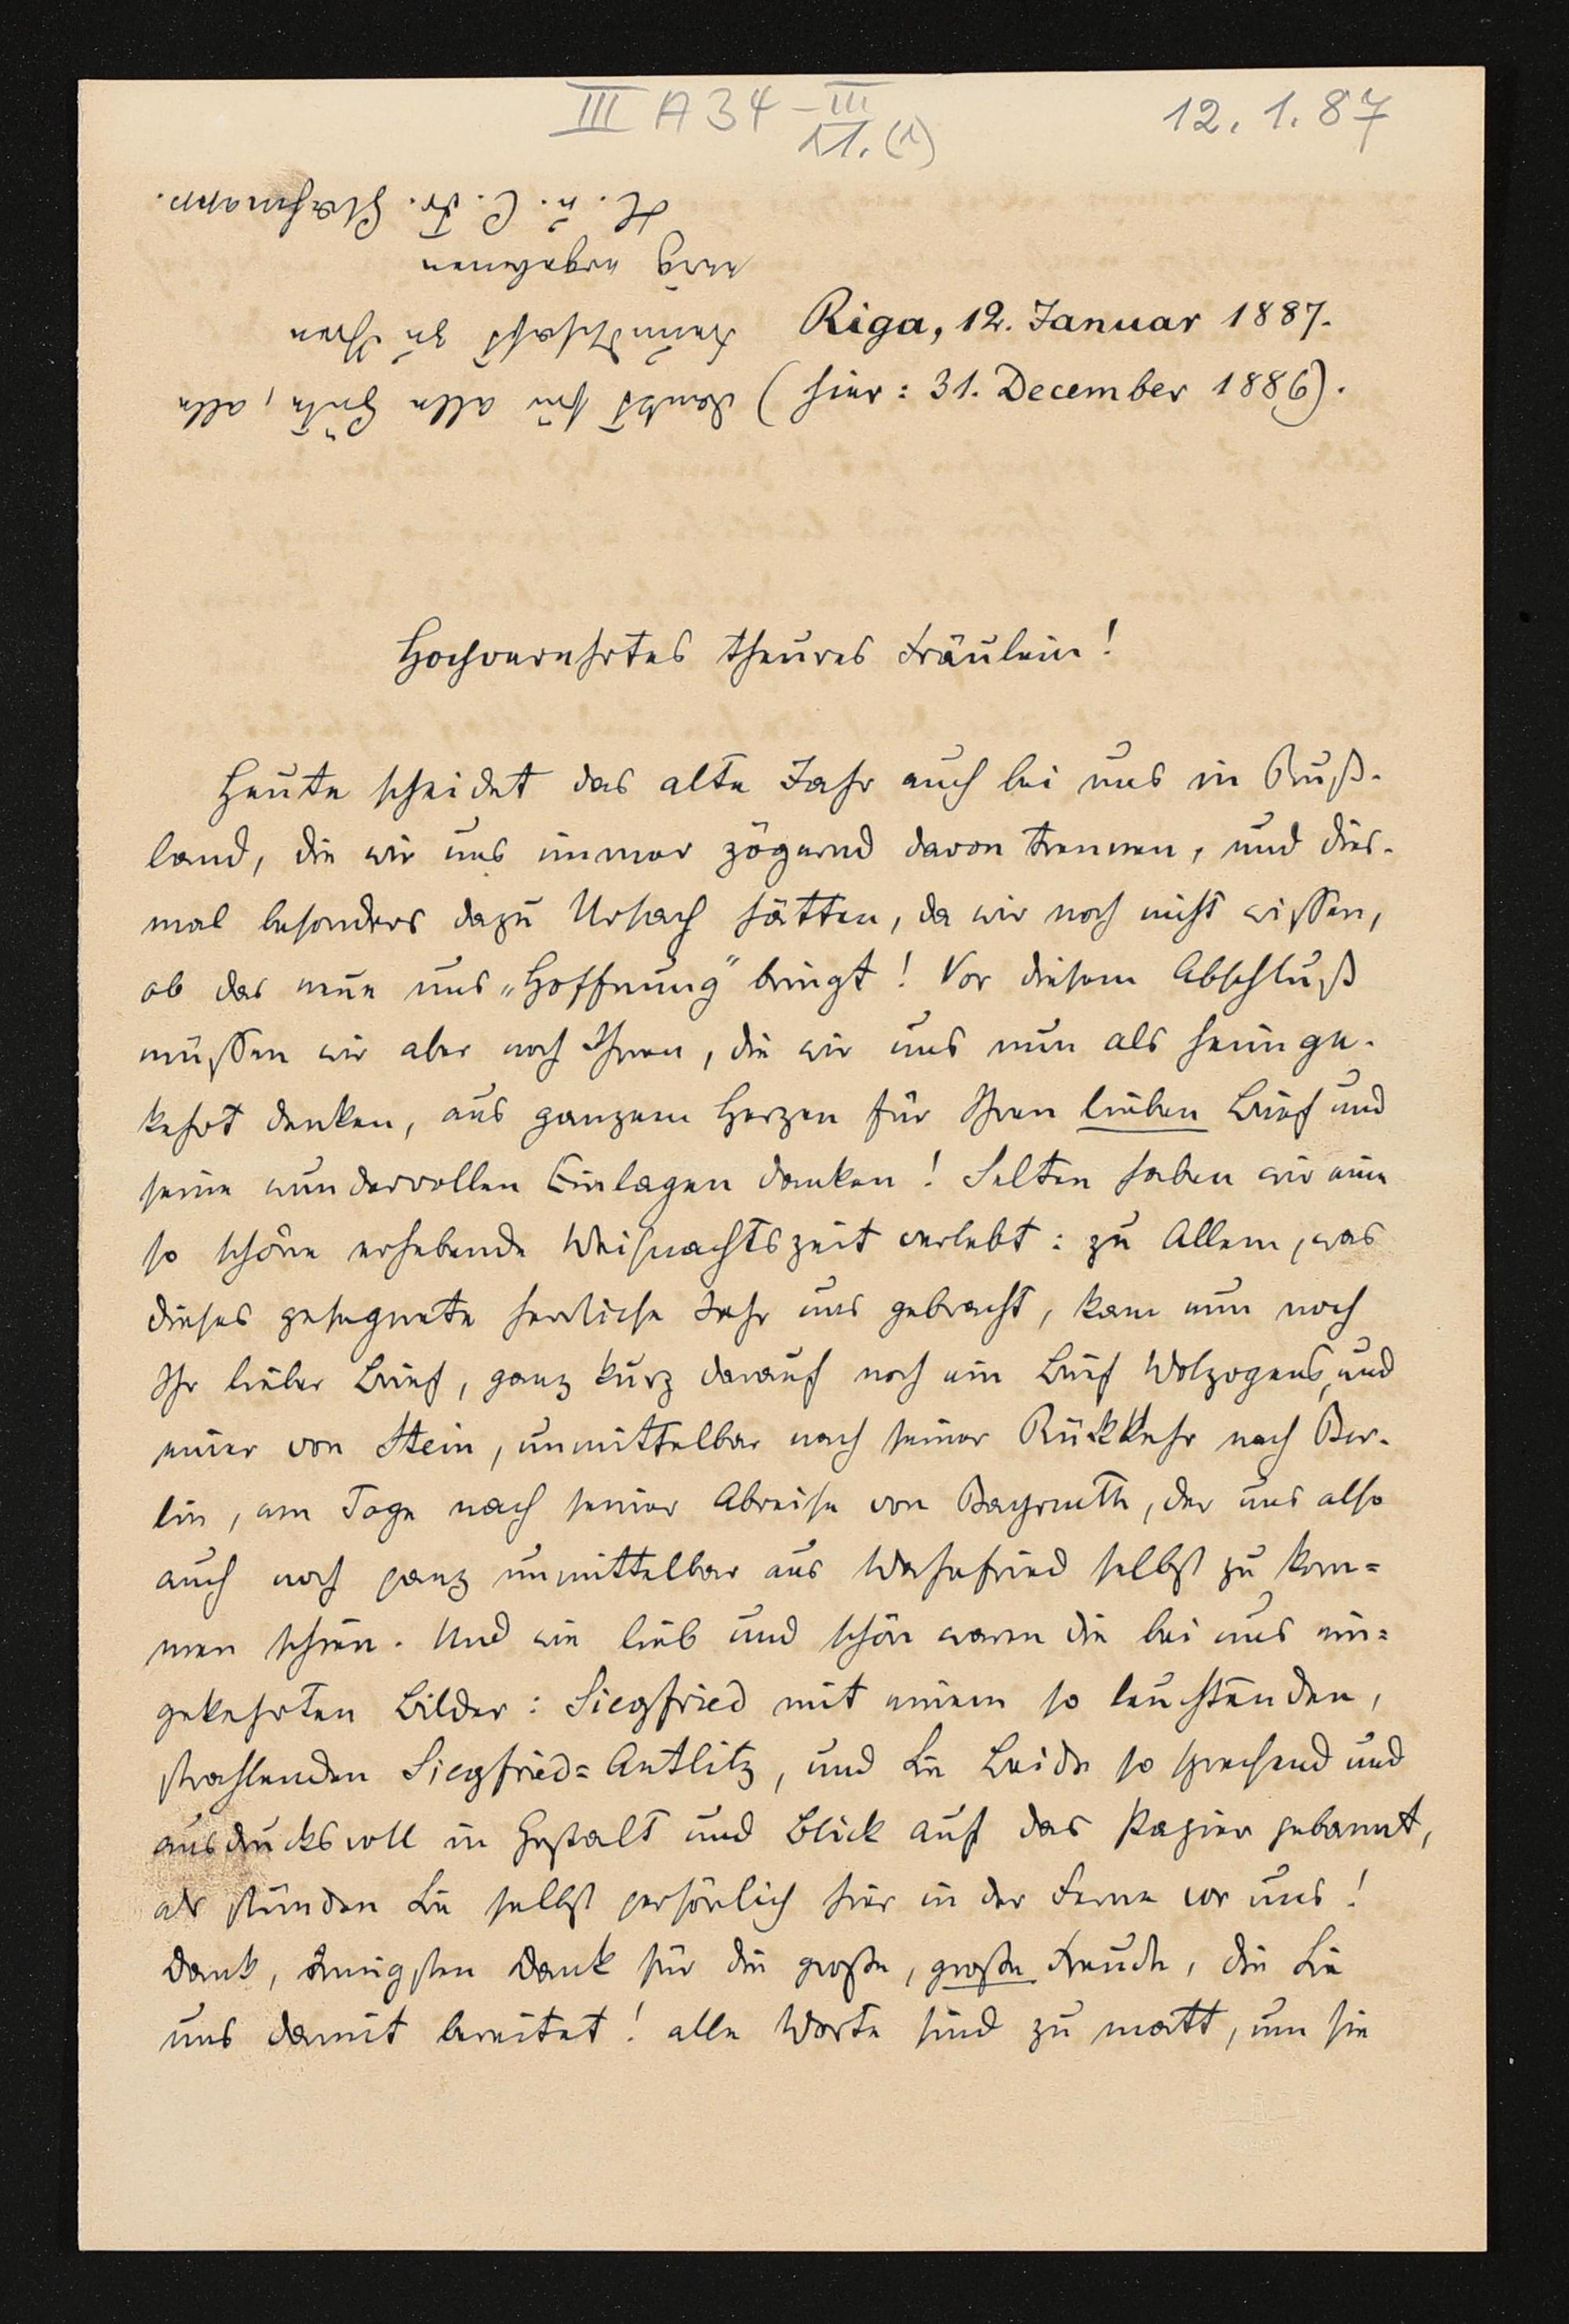 III A 34 - III
11. (1)
12. 1. 87
Riga, 12. Januar 1887.
(hier: 31. December 1886).
Hochverehrtes theures Fräulein!
Heute scheidet das alte Jahr auch bei uns in Ruß-
land, die wir uns immer zögernd davon trennen, und dies-
mal besonders dazu Ursach hätten, da wir noch nicht wissen,
ob das neue uns „Hoffnung" bringt! Vor diesem Abschluß
müssen wir aber noch Ihnen, die wir uns nun als heimge-
kehrt denken, aus ganzem Herzen für Ihren lieben Brief und
seine wundervollen Einlagen danken! Selten haben wir eine
so schöne erhebende Weihnachtszeit verlebt: zu Allem, was
dieses gesegnete herrliche Jahr uns gebracht, kam nun noch
Ihr lieber Brief, ganz kurz darauf noch ein Brief Wolzogens, und
einer von Stein, unmittelbar nach seiner Rückkehr nach Ber-
lin, am Tage nach seiner Abreise von Bayreuth, der uns also
auch noch ganz unmittelbar aus Wahnfried selbst zu kom=
men schien. Und wie lieb und schön waren die bei uns ein=
gekehrten Bilder: Siegfried mit einem so leuchtenden,
strahlenden Siegfried=Antlitz, und Sie Beide so sprechend und
ausdrucksvoll in Gestalt und Blick auf das Papier gebannt,
als stünden Sie selbst persönlich hier in der Ferne vor uns!
Dank, innigsten Dank für die große, große Freude, die Sie
uns damit bereitet! alle Worte sind zu matt, um sie
dankt für alle Güte, alle
Freundschaft zu Ihren
ewig ergebenen
H. u. C. Fr. Glasenapp.